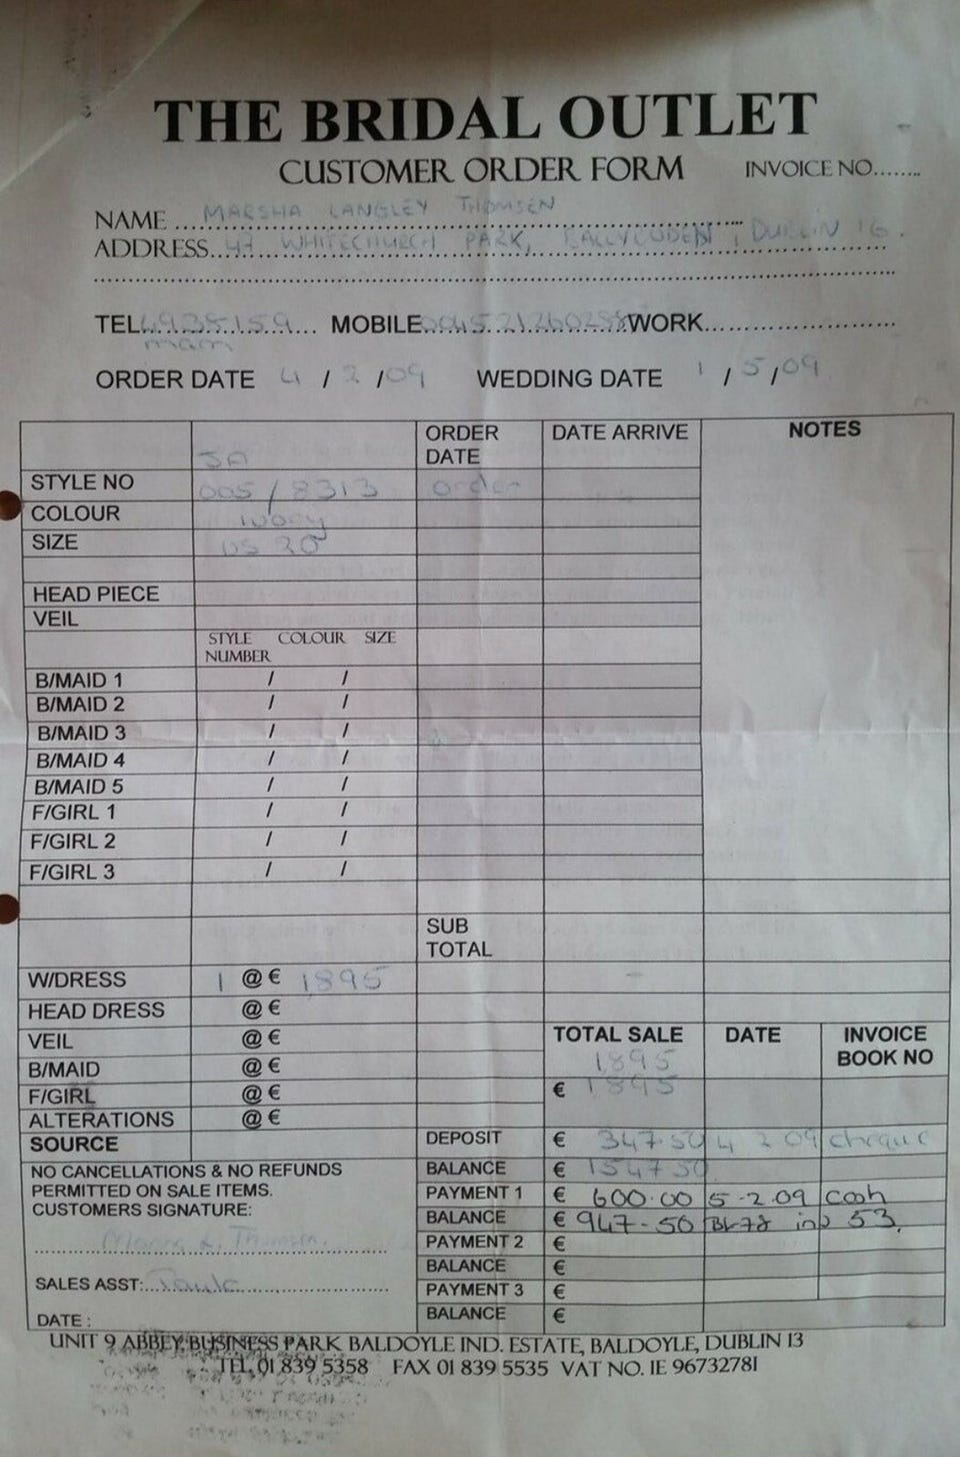 THE BRIDAL OUTLET
CUSTOMER ORDER FORM INVOICE NO........
NAME MARSHA LANGLEY THOMSEN
ADDRESS 47 WHITECHURCH PARK, DUBLIN 16.
TEL 4938159 MOBILE WORK
mam
ORDER DATE 4 / 2 / 09 WEDDING DATE 1 / 5 / 09
ORDER DATE DATE ARRIVE NOTES
JA
STYLE NO 005 / 8313 order
COLOUR Ivory
SIZE US 20
HEAD PIECE
VEIL
STYLE NUMBER COLOUR SIZE
B/MAID 1 / /
B/MAID 2 / /
B/MAID 3 / /
B/MAID 4 / /
B/MAID 5 / /
F/GIRL 1 / /
F/GIRL 2 / /
F/GIRL 3 / /
SUB TOTAL
W/DRESS 1 @ € 1895
HEAD DRESS @ €
VEIL @ €
B/MAID @ €
F/GIRL @ €
ALTERATIONS @ €
TOTAL SALE DATE INVOICE BOOK NO
1895
€ 1895
SOURCE
DEPOSIT € 347.50 4 2 09 cheque
BALANCE € 1547 50
PAYMENT 1 € 600.00 5-2.09 Cash
BALANCE € 947-50 53.
PAYMENT 2 €
BALANCE €
PAYMENT 3 €
BALANCE €
NO CANCELLATIONS & NO REFUNDS
PERMITTED ON SALE ITEMS.
CUSTOMERS SIGNATURE:
SALES ASST:
DATE :
UNIT 9 ABBEY BUSINESS PARK BALDOYLE IND. ESTATE, BALDOYLE, DUBLIN 13
TEL 01 839 5358 FAX 01 839 5535 VAT NO. IE 9673278I